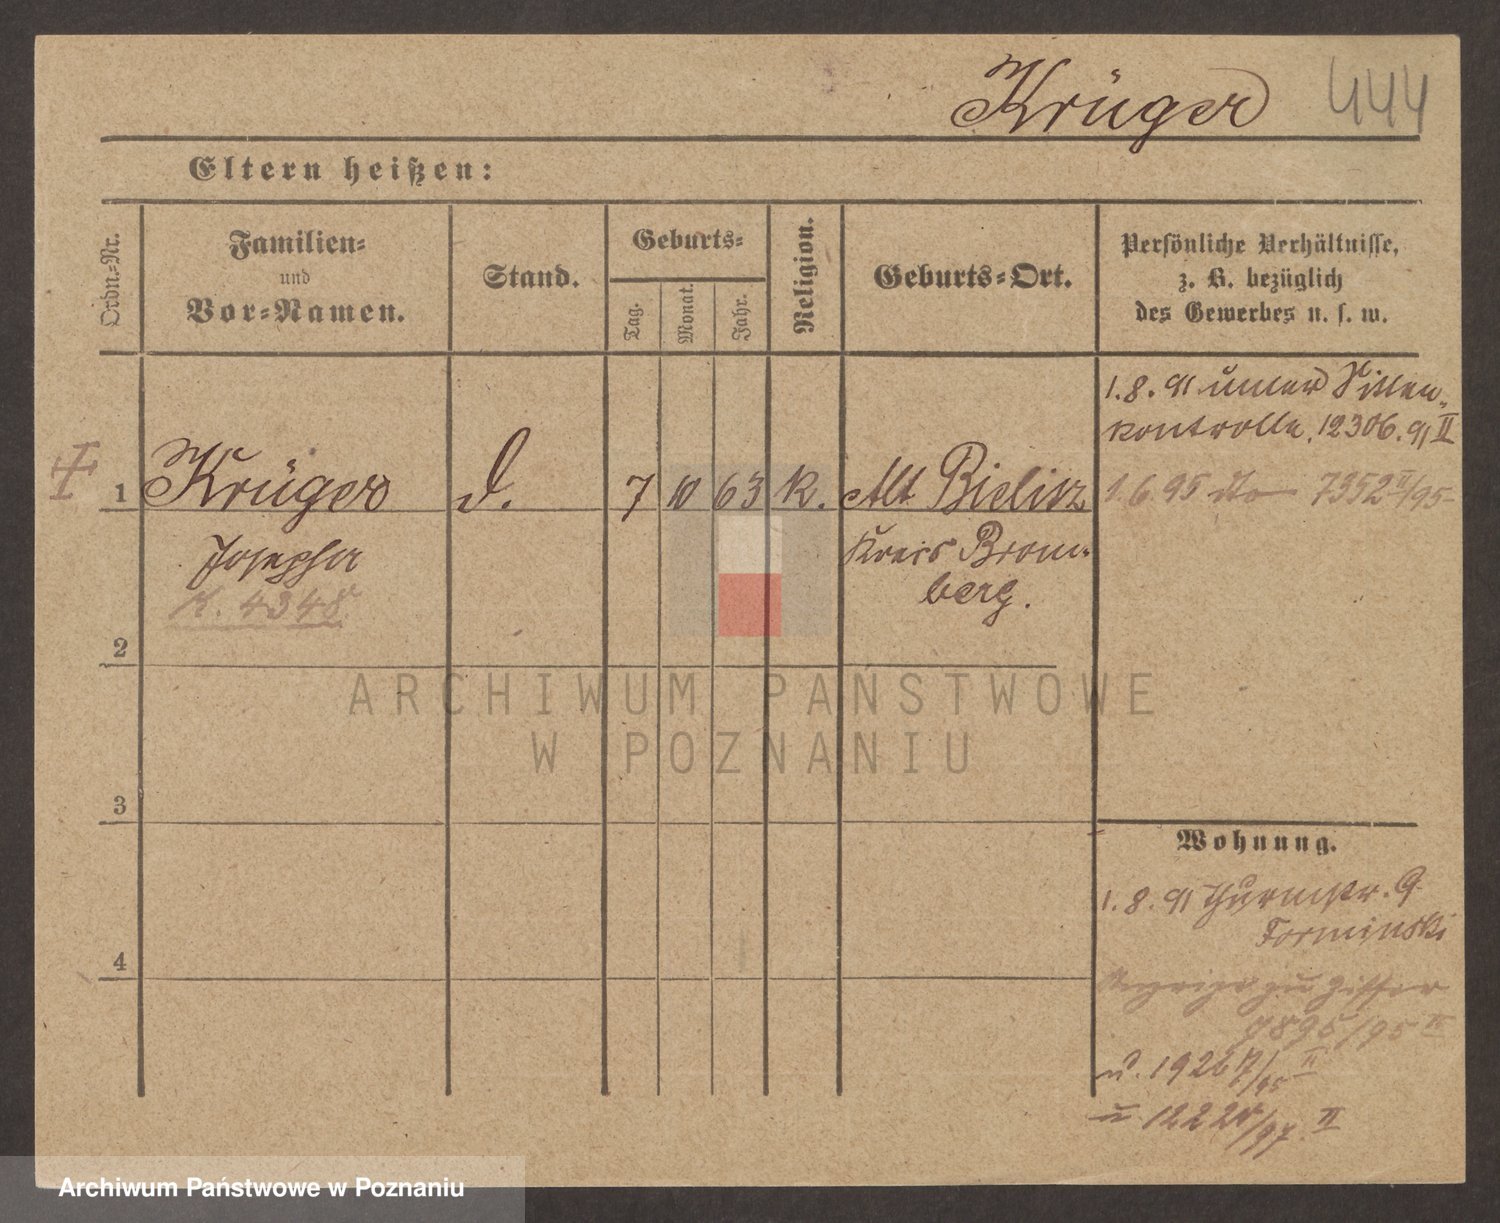 Krüger 444
Eltern heißen:
Ordn.-Nr.
Familien-
und
Vor-Namen.
Stand.
Geburts-
Tag.
Monat.
Jahr.
Religion.
Geburts-Ort.
Persönliche Verhältnisse,
z. B. bezüglich
des Gewerbes u. s. w.
1.8.91 unter Sitten-
kontrolle. 12306.91 II
1 Krüger d. 7 10 63 k. Alt Bielitz
1.6.95 dto 7352 II/95
Josepha
Kreis Brom-
berg.
K. 4348
2
ARCHIWUM PAŃSTWOWE
W POZNANIU
3
Wohnung.
1.8.91 Thurmstr. 9
Torminski
4
Anzeige zu Ziffer
9895/95 II
u. 19267/95 II
u. /97 II
Archiwum Państwowe w Poznaniu